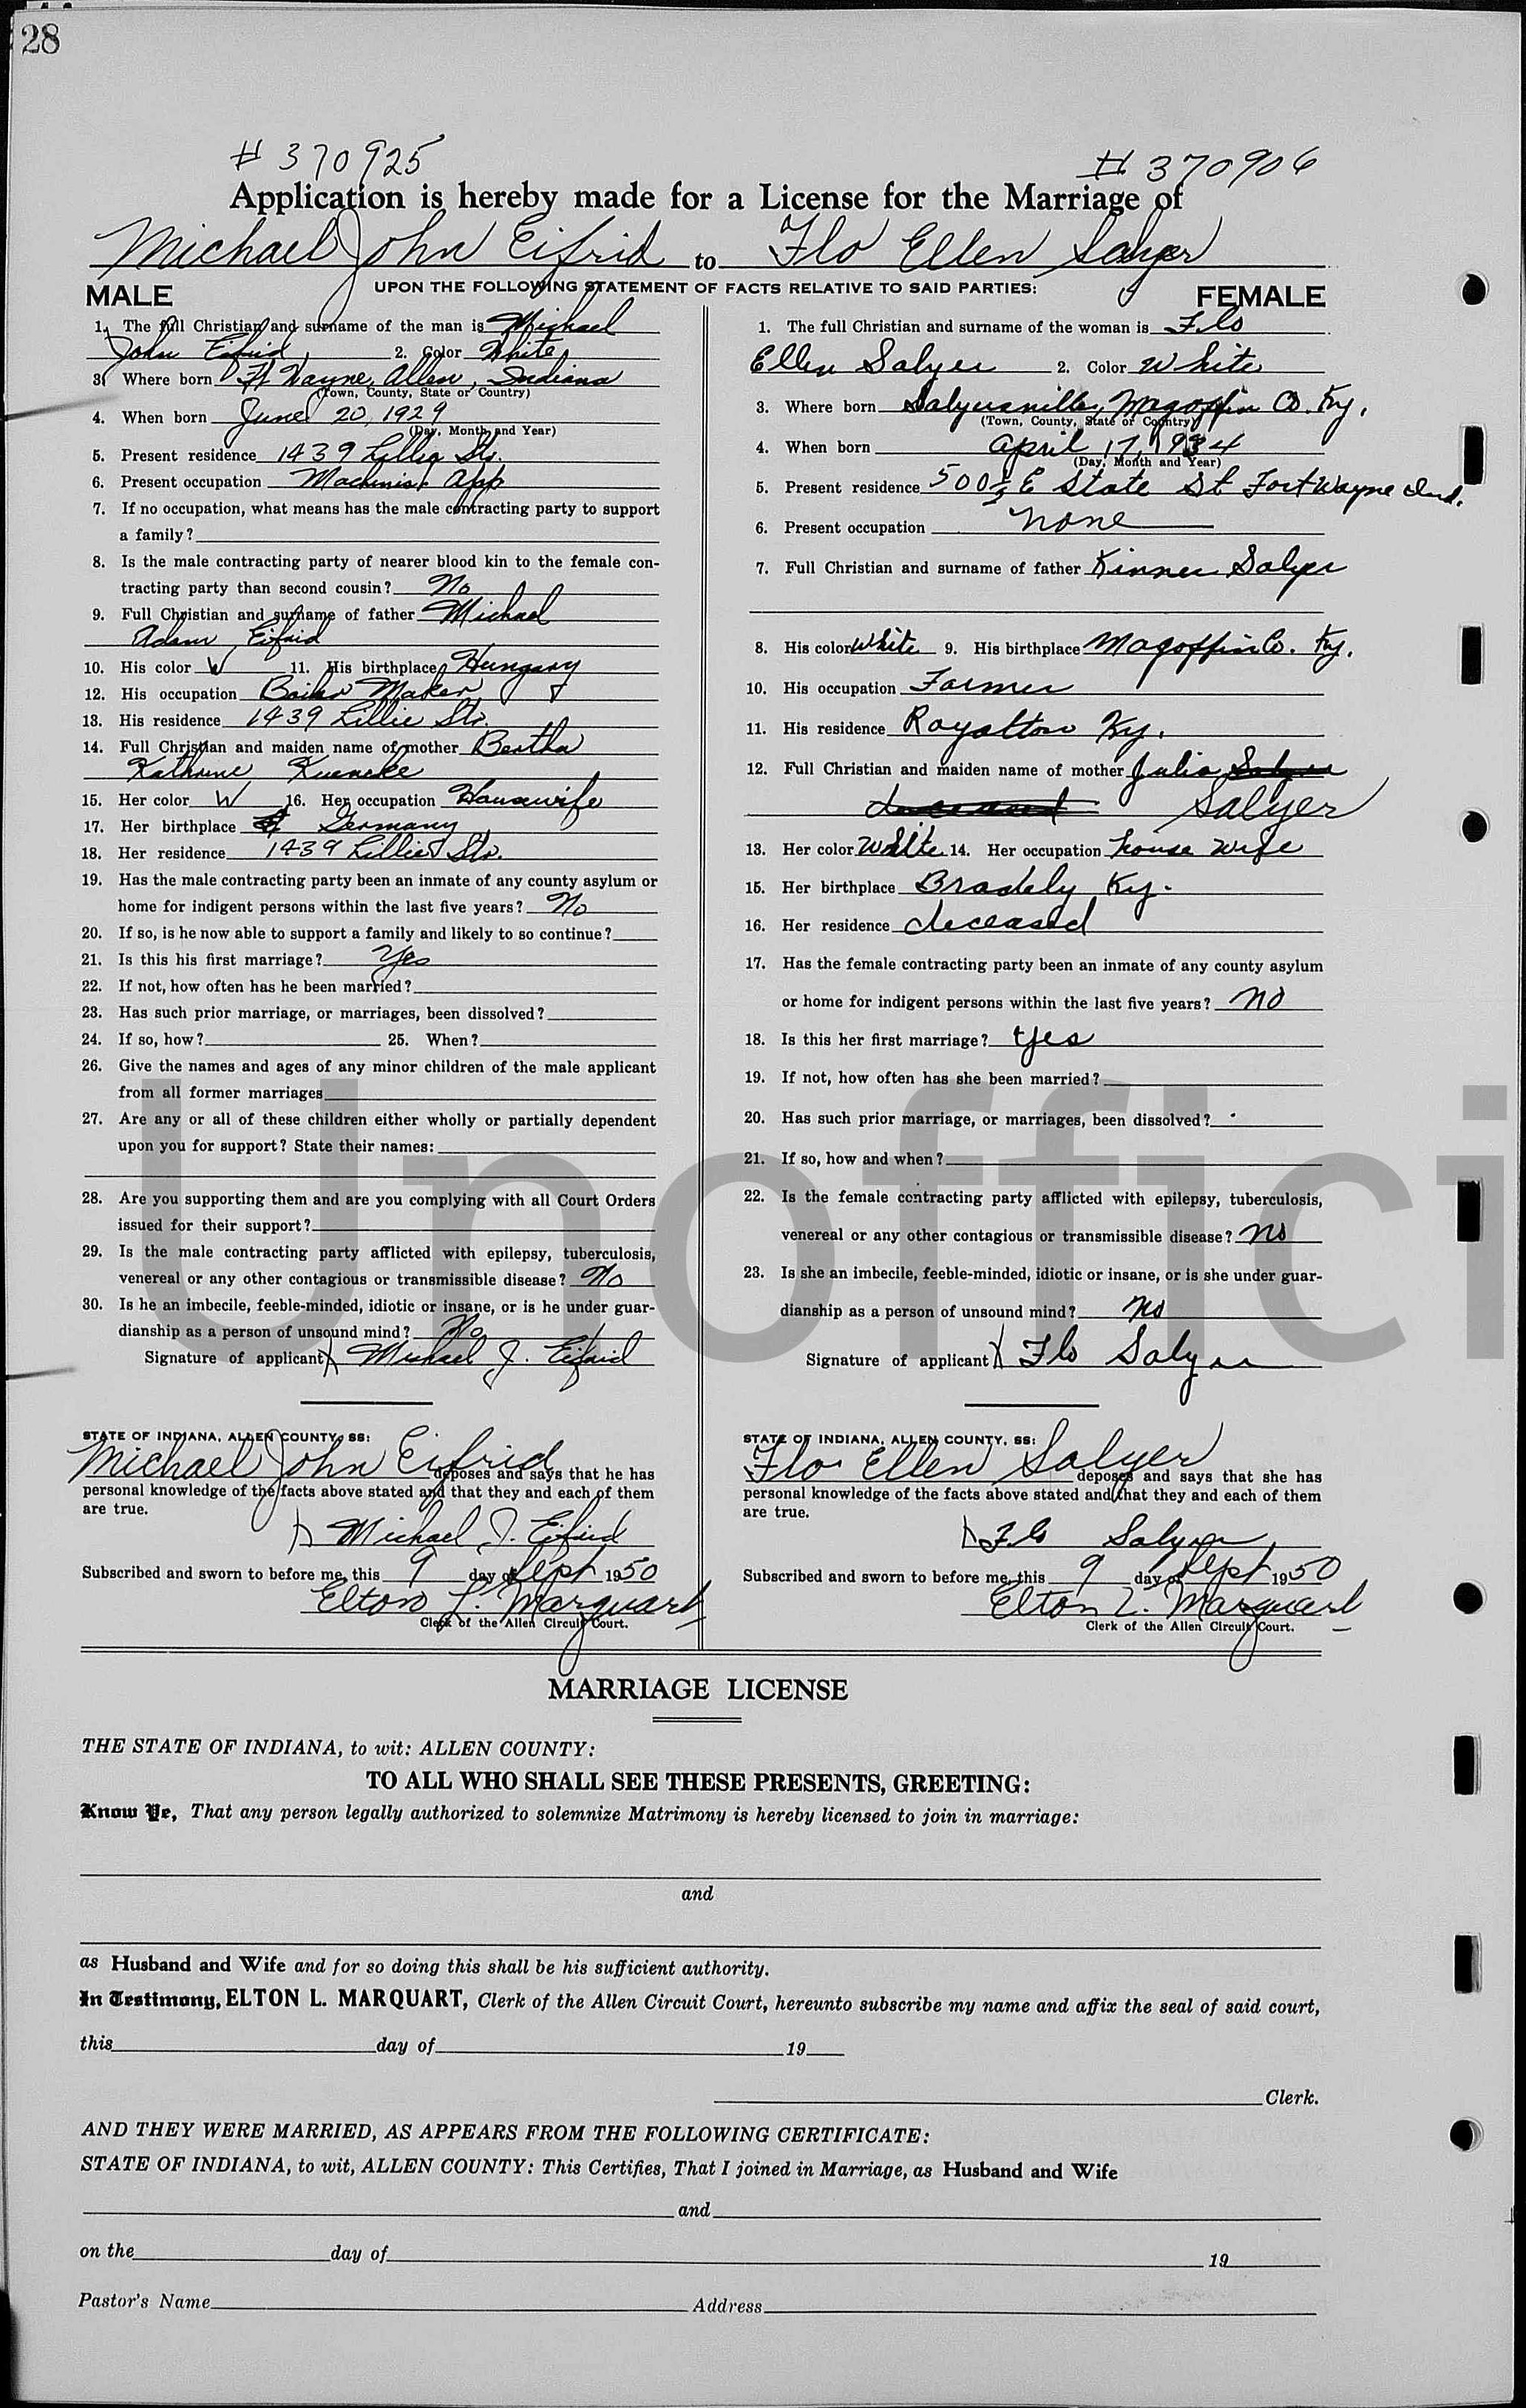 28
# 370925
# 370906
Application is hereby made for a License for the Marriage of
Michael John Eifrid to Flo Ellen Salyer
UPON THE FOLLOWING STATEMENT OF FACTS RELATIVE TO SAID PARTIES:
MALE
1. The full Christian and surname of the man is Michael
John Eifrid, 2. Color White
3. Where born Ft Wayne, Allen, Indiana
(Town, County, State or Country)
4. When born June 20, 1929
(Day, Month and Year)
5. Present residence 1439 Lillie Str.
6. Present occupation Machinist App
7. If no occupation, what means has the male contracting party to support
a family?
8. Is the male contracting party of nearer blood kin to the female con-
tracting party than second cousin? No
9. Full Christian and surname of father Michael
Adam Eifrid
10. His color W 11. His birthplace Hungary
12. His occupation Boiler Maker
13. His residence 1439 Lillie Str.
14. Full Christian and maiden name of mother Bertha
Kathrine Kueneke
15. Her color W 16. Her occupation Housewife
17. Her birthplace Germany
18. Her residence 1439 Lillie Str.
19. Has the male contracting party been an inmate of any county asylum or
home for indigent persons within the last five years? No
20. If so, is he now able to support a family and likely to so continue?
21. Is this his first marriage? Yes
22. If not, how often has he been married?
23. Has such prior marriage, or marriages, been dissolved?
24. If so, how? 25. When?
26. Give the names and ages of any minor children of the male applicant
from all former marriages
27. Are any or all of these children either wholly or partially dependent
upon you for support? State their names:
28. Are you supporting them and are you complying with all Court Orders
issued for their support?
29. Is the male contracting party afflicted with epilepsy, tuberculosis,
venereal or any other contagious or transmissible disease? No
30. Is he an imbecile, feeble-minded, idiotic or insane, or is he under guar-
dianship as a person of unsound mind? No
Signature of applicant X Michael J. Eifrid
STATE OF INDIANA, ALLEN COUNTY, SS:
Michael John Eifrid deposes and says that he has
personal knowledge of the facts above stated and that they and each of them
are true.
X Michael J. Eifrid
Subscribed and sworn to before me, this 9 day of Sept 1950
Elton L. Marquart
Clerk of the Allen Circuit Court.
FEMALE
1. The full Christian and surname of the woman is Flo
Ellen Salyer 2. Color White
3. Where born Salyersville, Magoffin Co. Ky.
(Town, County, State or Country)
4. When born April 17, 1934
(Day, Month and Year)
5. Present residence 500½ E State St Fort Wayne Ind.
6. Present occupation none
7. Full Christian and surname of father Kinner Salyer
8. His color White 9. His birthplace Magoffin Co. Ky.
10. His occupation Farmer
11. His residence Royalton Ky.
12. Full Christian and maiden name of mother Julia Salyer
deceased Salyer
13. Her color White 14. Her occupation house wife
15. Her birthplace Bradely Ky.
16. Her residence deceased
17. Has the female contracting party been an inmate of any county asylum
or home for indigent persons within the last five years? no
18. Is this her first marriage? yes
19. If not, how often has she been married?
20. Has such prior marriage, or marriages, been dissolved?
21. If so, how and when?
22. Is the female contracting party afflicted with epilepsy, tuberculosis,
venereal or any other contagious or transmissible disease? no
23. Is she an imbecile, feeble-minded, idiotic or insane, or is she under guar-
dianship as a person of unsound mind? no
Signature of applicant X Flo Salyer
STATE OF INDIANA, ALLEN COUNTY, SS:
Flo Ellen Salyer deposes and says that she has
personal knowledge of the facts above stated and that they and each of them
are true.
X Flo Salyer
Subscribed and sworn to before me, this 9 day of Sept 1950
Elton L. Marquart
Clerk of the Allen Circuit Court.
Unoffici
MARRIAGE LICENSE
THE STATE OF INDIANA, to wit: ALLEN COUNTY:
TO ALL WHO SHALL SEE THESE PRESENTS, GREETING:
Know Ye, That any person legally authorized to solemnize Matrimony is hereby licensed to join in marriage:
and
as Husband and Wife and for so doing this shall be his sufficient authority.
In Testimony, ELTON L. MARQUART, Clerk of the Allen Circuit Court, hereunto subscribe my name and affix the seal of said court,
this day of 19
Clerk.
AND THEY WERE MARRIED, AS APPEARS FROM THE FOLLOWING CERTIFICATE:
STATE OF INDIANA, to wit, ALLEN COUNTY: This Certifies, That I joined in Marriage, as Husband and Wife
and
on the day of 19
Pastor's Name Address